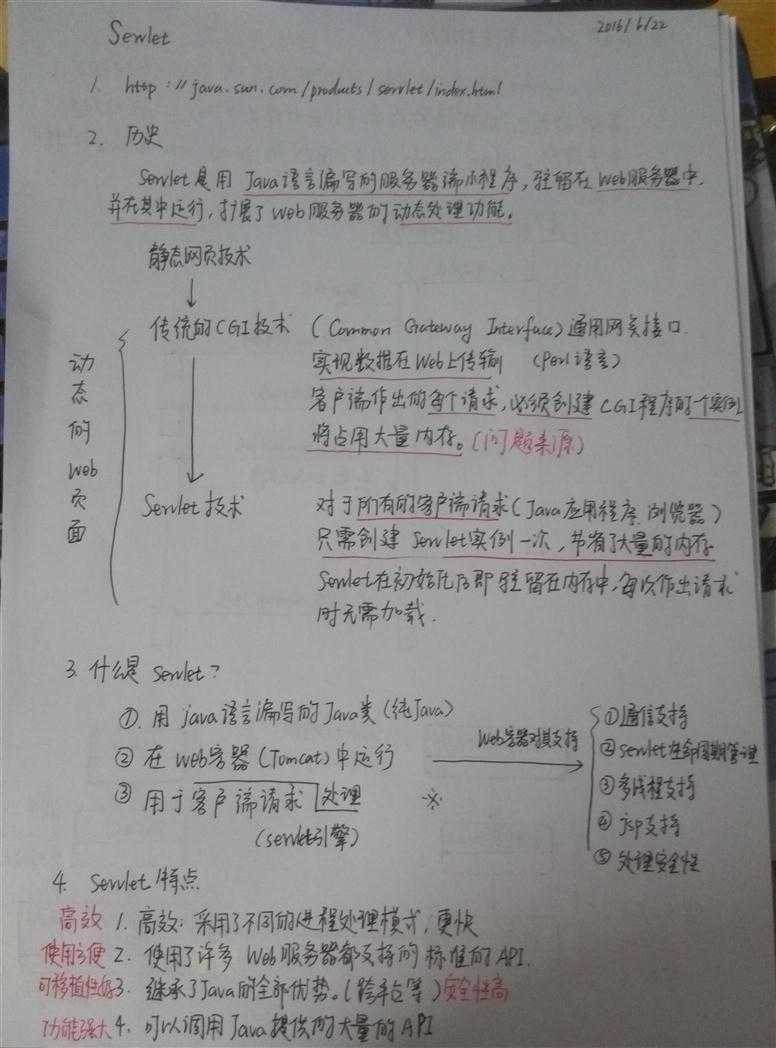 Servlet 2016/6/22
1. http://java.sun.com/products/servlet/index.html
2. 历史
Servlet是用 Java语言编写的服务器端小程序，驻留在Web服务器中，
并在其中运行，扩展了Web服务器的动态处理功能。
静态网页技术
传统的CGI技术 (Common Gateway Interface)通用网关接口.
实现数据在Web上传输 (Perl语言)
客户端作出的每个请求，必须创建CGI程序的一个实例
将占用大量内存。(问题来源)
动态的web页面
Servlet技术 对于所有的客户端请求(Java应用程序、浏览器)
只需创建Servlet实例一次，节省了大量的内存
Servlet在初始化后即驻留在内存中，每次作出请求
时无需加载.
3. 什么是 Servlet?
①. 用 java语言编写的Java类(纯Java)
② 在 web容器(Tomcat)中运行
③ 用于客户端请求 处理
(servlet引擎)
Web容器对其支持
※
①通信支持
②servlet生命周期管理
③多线程支持
④jsp支持
⑤处理安全性
4. Servlet 特点
高效 1. 高效: 采用了不同的进程处理模式，更快
使用方便 2. 使用了许多 Web服务器都支持的 标准的API.
可移植性好 3. 继承了Java的全部优势。(跨平台等) 安全性高
功能强大 4. 可以调用Java提供的大量的API